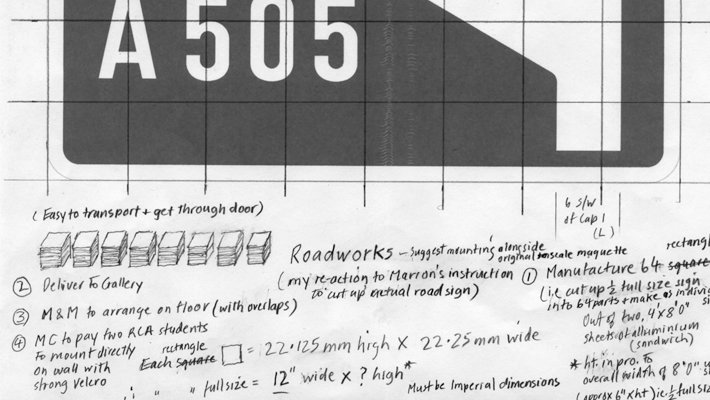 A 505
6 s/w
of Cap 1
(L)
(Easy to transport + get through door)
Roadworks – suggest mounting alongside
original to scale maquette
(my re-action to Marron's instruction
to cut up actual road sign)
② Deliver To Gallery
③ M&M to arrange on floor (with overlaps)
④ MC to pay two RCA students
To mount directly
on wall with
strong velcro
rectangle
Each square = 22.125mm high X 22.25mm wide
" " " full size = 12" wide x ? high*
Must be Imperial dimensions
① Manufacture 64 square
(i.e cut up ½ full size sign
into 64 parts + make as
Out of two, 4'x8'0"
sheets of alluminium
(sandwich)
* ht. in pro. to
overall width of 8'0"
(approx 6" x ht) ie. ½ full